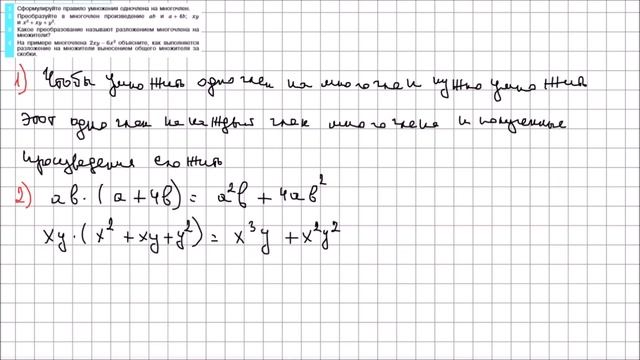 1 Сформулируйте правило умножения одночлена на многочлен.
2 Преобразуйте в многочлен произведение ab и a + 4b; xy
и x² + xy + y².
3 Какое преобразование называют разложением многочлена на
множители?
4 На примере многочлена 2xy – 6x² объясните, как выполняется
разложение на множители вынесением общего множителя за
скобки.
1) Чтобы умножить одночлен на многочлен нужно умножить
этот одночлен на каждый член многочлена и полученные
произведения сложить
2) ab · (a + 4b) = a²b + 4ab²
xy · (x² + xy + y²) = x³y + x²y²